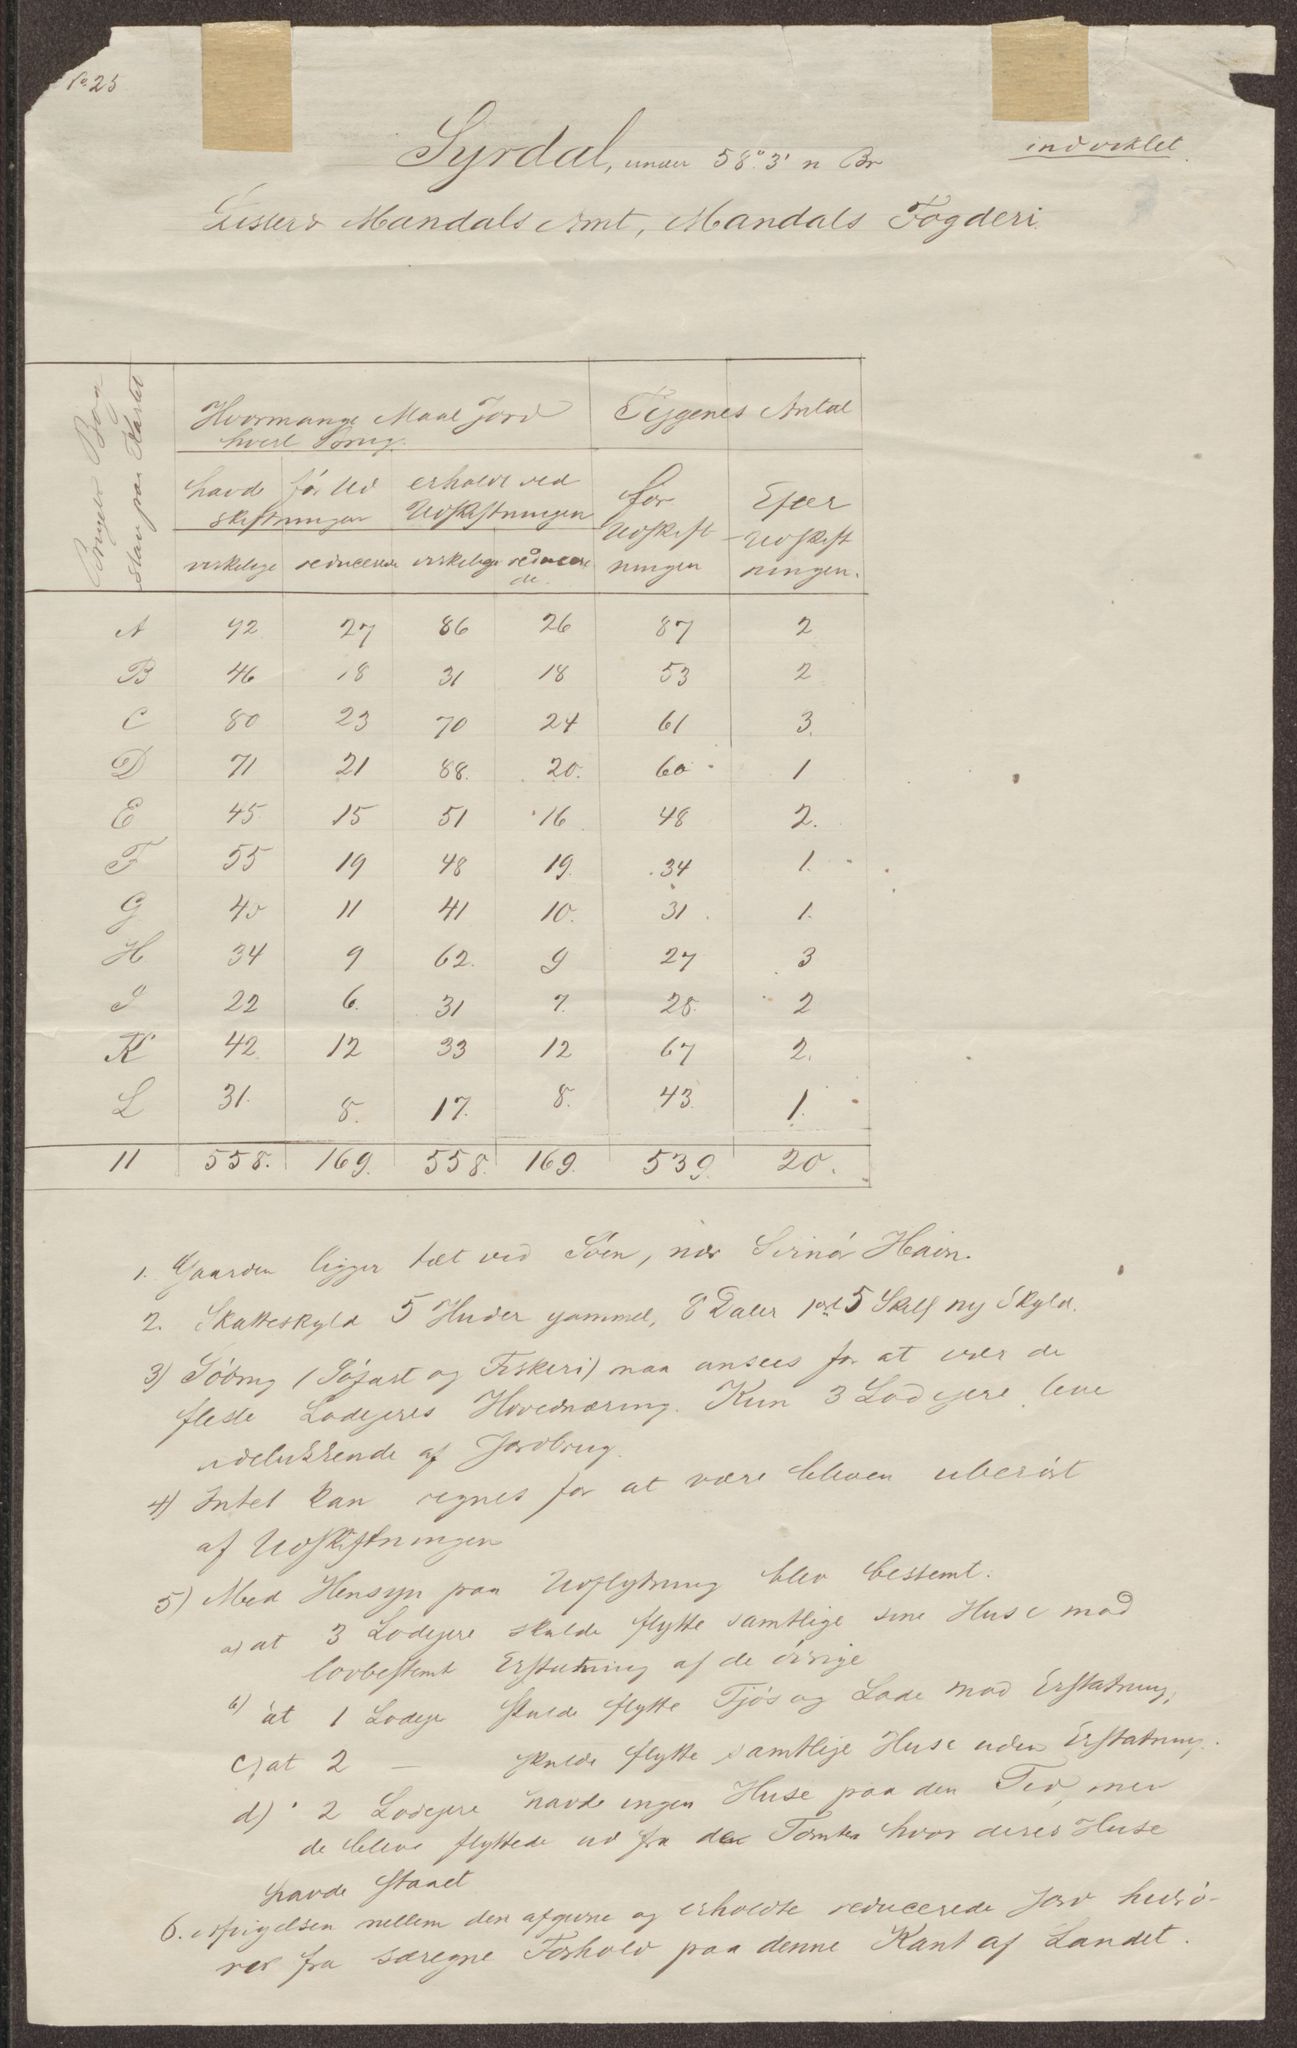 No 25
indviklet
Syrdal, under 58° 3' n Br
Lister & Mandals Amt, Mandals Fogderi
Brugets Bog
stav paa Kartet
Hvormange Maal Jord
hvert Brug
Teigenes Antal
havde før Ud
skiftningen
erholdt ved
Udskiftningen
før
Udskift
ningen
Efter
Udskift
ningen.
virkelige reducerede virkelige reducere
de
A 92 27 86 26 87 2
B 46 18 31 18 53 2
C 80 23 70 24 61 3.
D 71 21 88. 20. 60 1
E 45 15 51 16 48 2.
F 55 19 48 19. 34 1.
G 40 11 41 10. 31 1.
H 34 9 62. 9 27 3
I 22 6 31 7. 28 2
K 42 12 33 12 67 2.
L 31. 8. 17. 8. 43 1.
11 558. 169. 558. 169. 539. 20.
1. Gaarden ligger tæt ved Søen, nær Svinør Havn.
2. Skatteskyld 5 Huder gammel, 8 Daler 1 ort 5 Skill ny Skyld.
3) Søbrug (Søfart og Fiskeri) maa ansees for at være de
fleste Lodejeres Hovednæring. Kun 3 Lodejere leve
udelukkende af Jordbrug.
4) Intet kan regnes for at være bleven uberørt
af Udskiftningen
5) Med Hensyn paa Udflytning blev bestemt.
a) at 3 Lodejere skulde flytte samtlige sine Huse mod
lovbestemt Erstatning af de øvrige
b) at 1 Lodejer skulde flytte Fjøs og Lade mod Erstatning,
c) at 2 — skulde flytte samtlige Huse uden Erstatning.
d) 2 Lodejere havde ingen Huse paa den Tid, men
de bleve flyttede ud fra de Tomter hvor deres Huse
havde staaet
6. Afvigelsen mellem den afgivne og erholdte reducerede Jord hidrø-
rer fra særegne Forhold paa denne Kant af Landet.